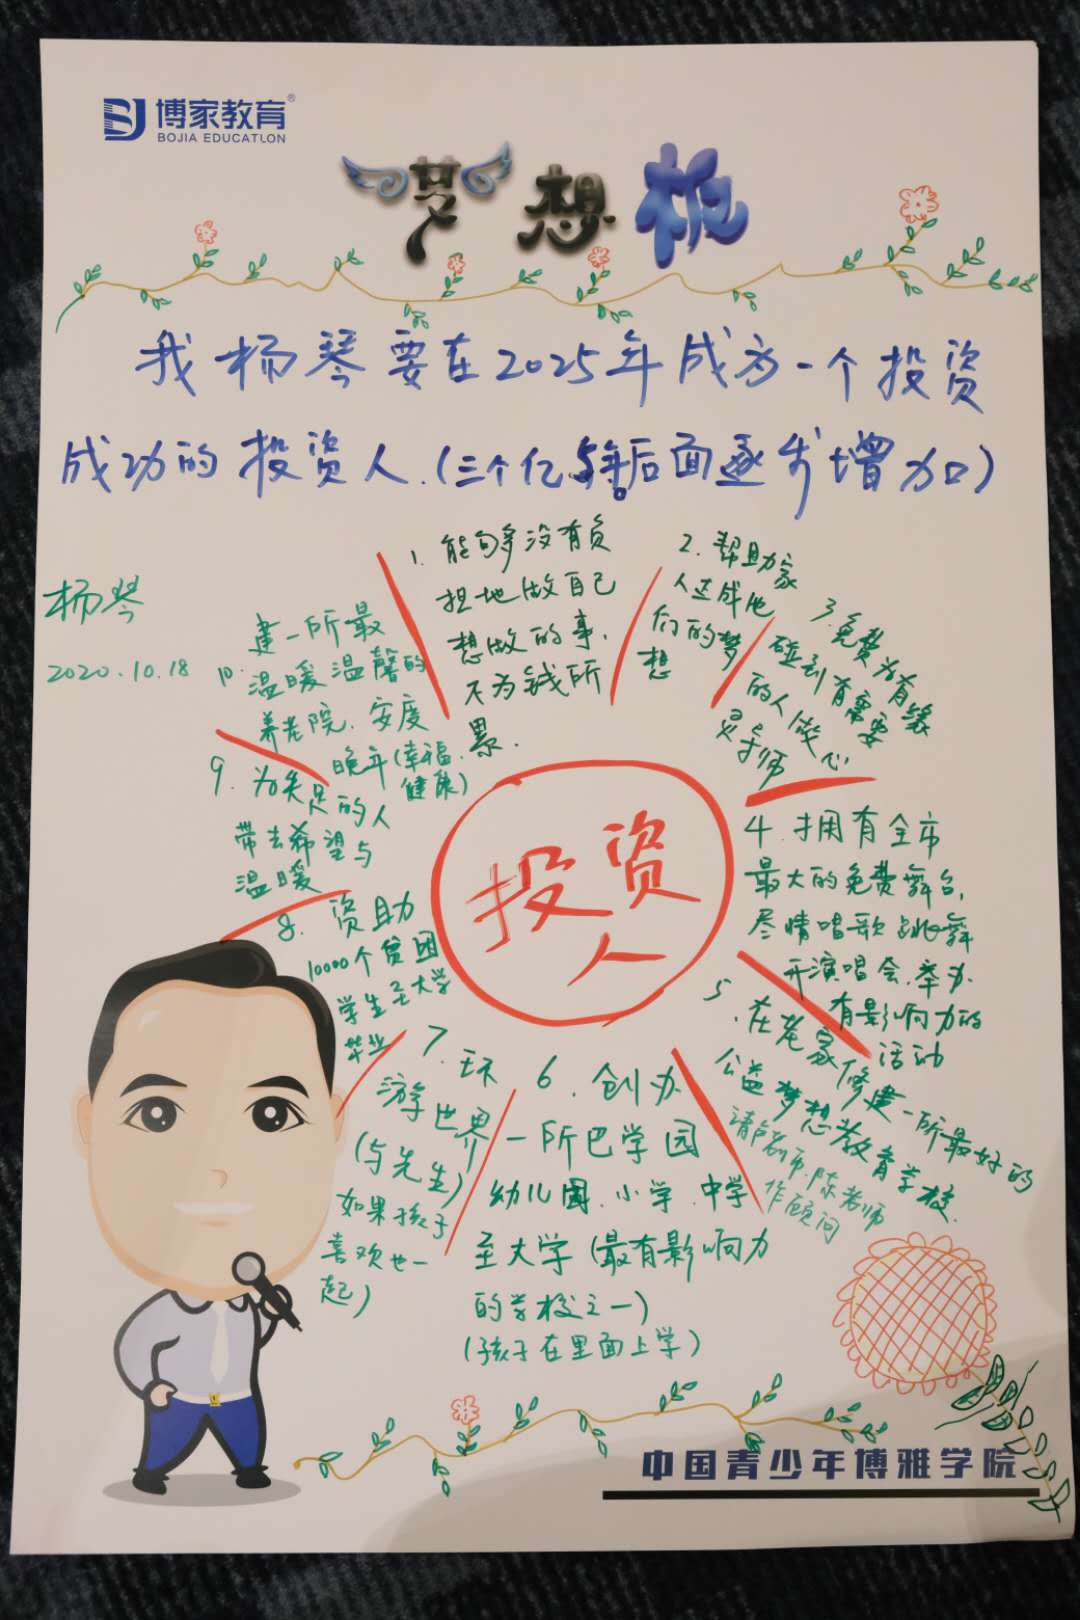 博家教育®
BOJIA EDUCATION
梦想板
我杨琴要在2025年成为一个投资
成功的投资人.(三个亿 后面逐步增加)
杨琴
2020.10.18
投资
人
1. 能够多没有负
担地做自己
想做的事,
不为钱所
累.
2. 帮助家
人达成他
们的梦
想
3. 免费为有缘
碰到有需要
的人做心
灵导师
4. 拥有全市
最大的免费舞台,
尽情唱歌跳舞
开演唱会.举办
有影响力的
活动
5. 在老家修建一所最好的
公益梦想教育学校.
请卢老师.陈老师
作顾问
6. 创办
一所巴学园
幼儿园.小学.中学
至大学(最有影响力
的学校之一)
(孩子在里面上学)
7. 环
游世界
(与先生)
如果孩子
喜欢也一
起)
8. 资助
10000个贫困
学生至大学
毕业
9. 为失足的人
带去希望与
温暖
10. 建一所最
温暖温馨的
养老院.安度
晚年(幸福.
健康)
中国青少年博雅学院